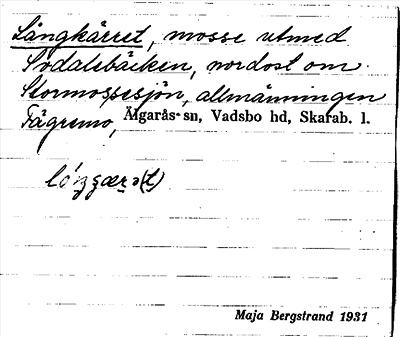 Långkärret, mosse utmed
Sodalsbäcken, nordost om
Stormossesjön, allmänningen
Fägremo, Älgarås sn, Vadsbo hd, Skarab. l.
Maja Bergstrand 1931